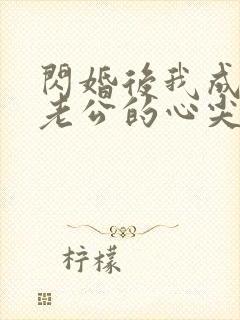 閃婚後我成
老公的心尖
柠檬